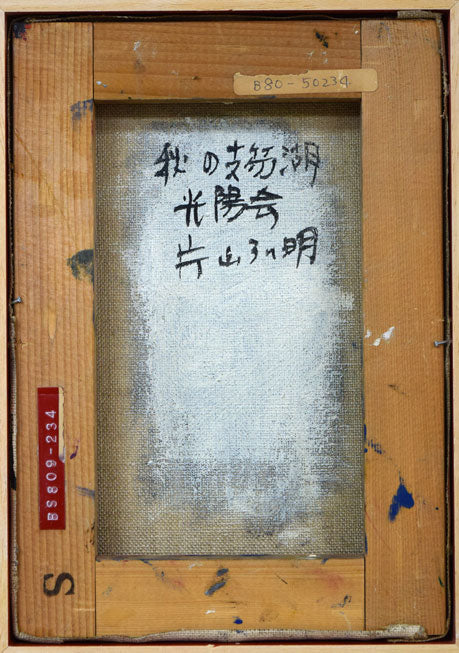 B80-50234
秋の支笏湖
光陽会
片山弘明
BS809-234
S